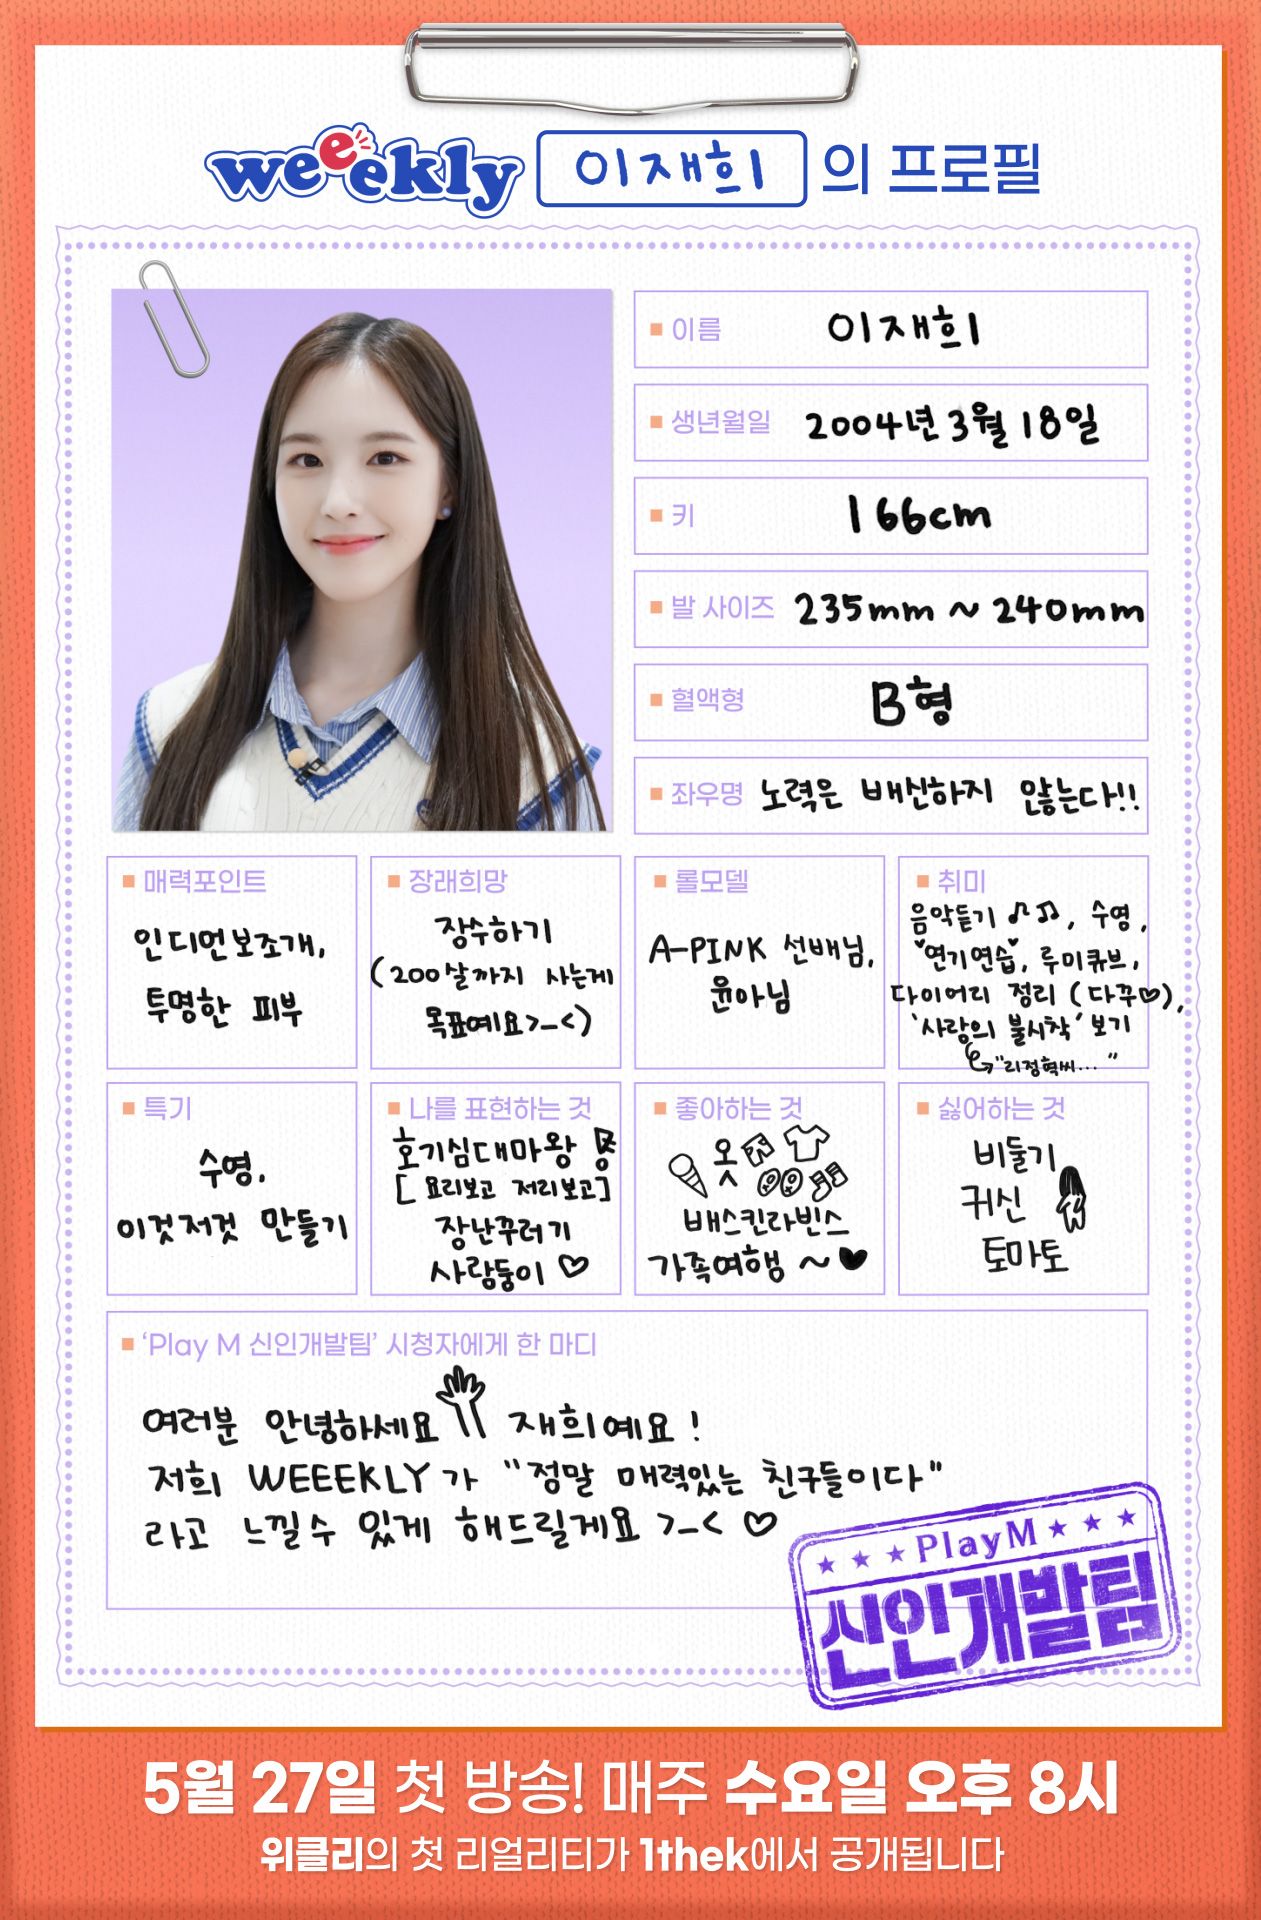 weeekly 이재희 의 프로필
이름 이재희
생년월일 2004년 3월 18일
키 166cm
발 사이즈 235mm ~ 240mm
혈액형 B형
좌우명 노력은 배신하지 않는다!!
매력포인트
인디언보조개,
투명한 피부
장래희망
장수하기
(200살까지 사는게
목표예요>_<)
롤모델
A-PINK 선배님,
윤아님
취미
음악듣기 ♪♫, 수영,
연기연습, 루미큐브,
다이어리 정리 (다꾸♡),
'사랑의 불시착' 보기
"리정혁씨..."
특기
수영,
이것저것 만들기
나를 표현하는 것
호기심대마왕
[요리보고 저리보고]
장난꾸러기
사람둥이 ♡
좋아하는 것
옷
배스킨라빈스
가족여행 ~♥
싫어하는 것
비둘기
귀신
토마토
'Play M 신인개발팀' 시청자에게 한 마디
여러분 안녕하세요 재희예요!
저희 WEEEKLY가 "정말 매력있는 친구들이다"
라고 느낄수 있게 해드릴게요 >_< ♡
★ ★ ★ PlayM ★ ★ ★
신인개발팀
5월 27일 첫 방송! 매주 수요일 오후 8시
위클리의 첫 리얼리티가 1thek에서 공개됩니다